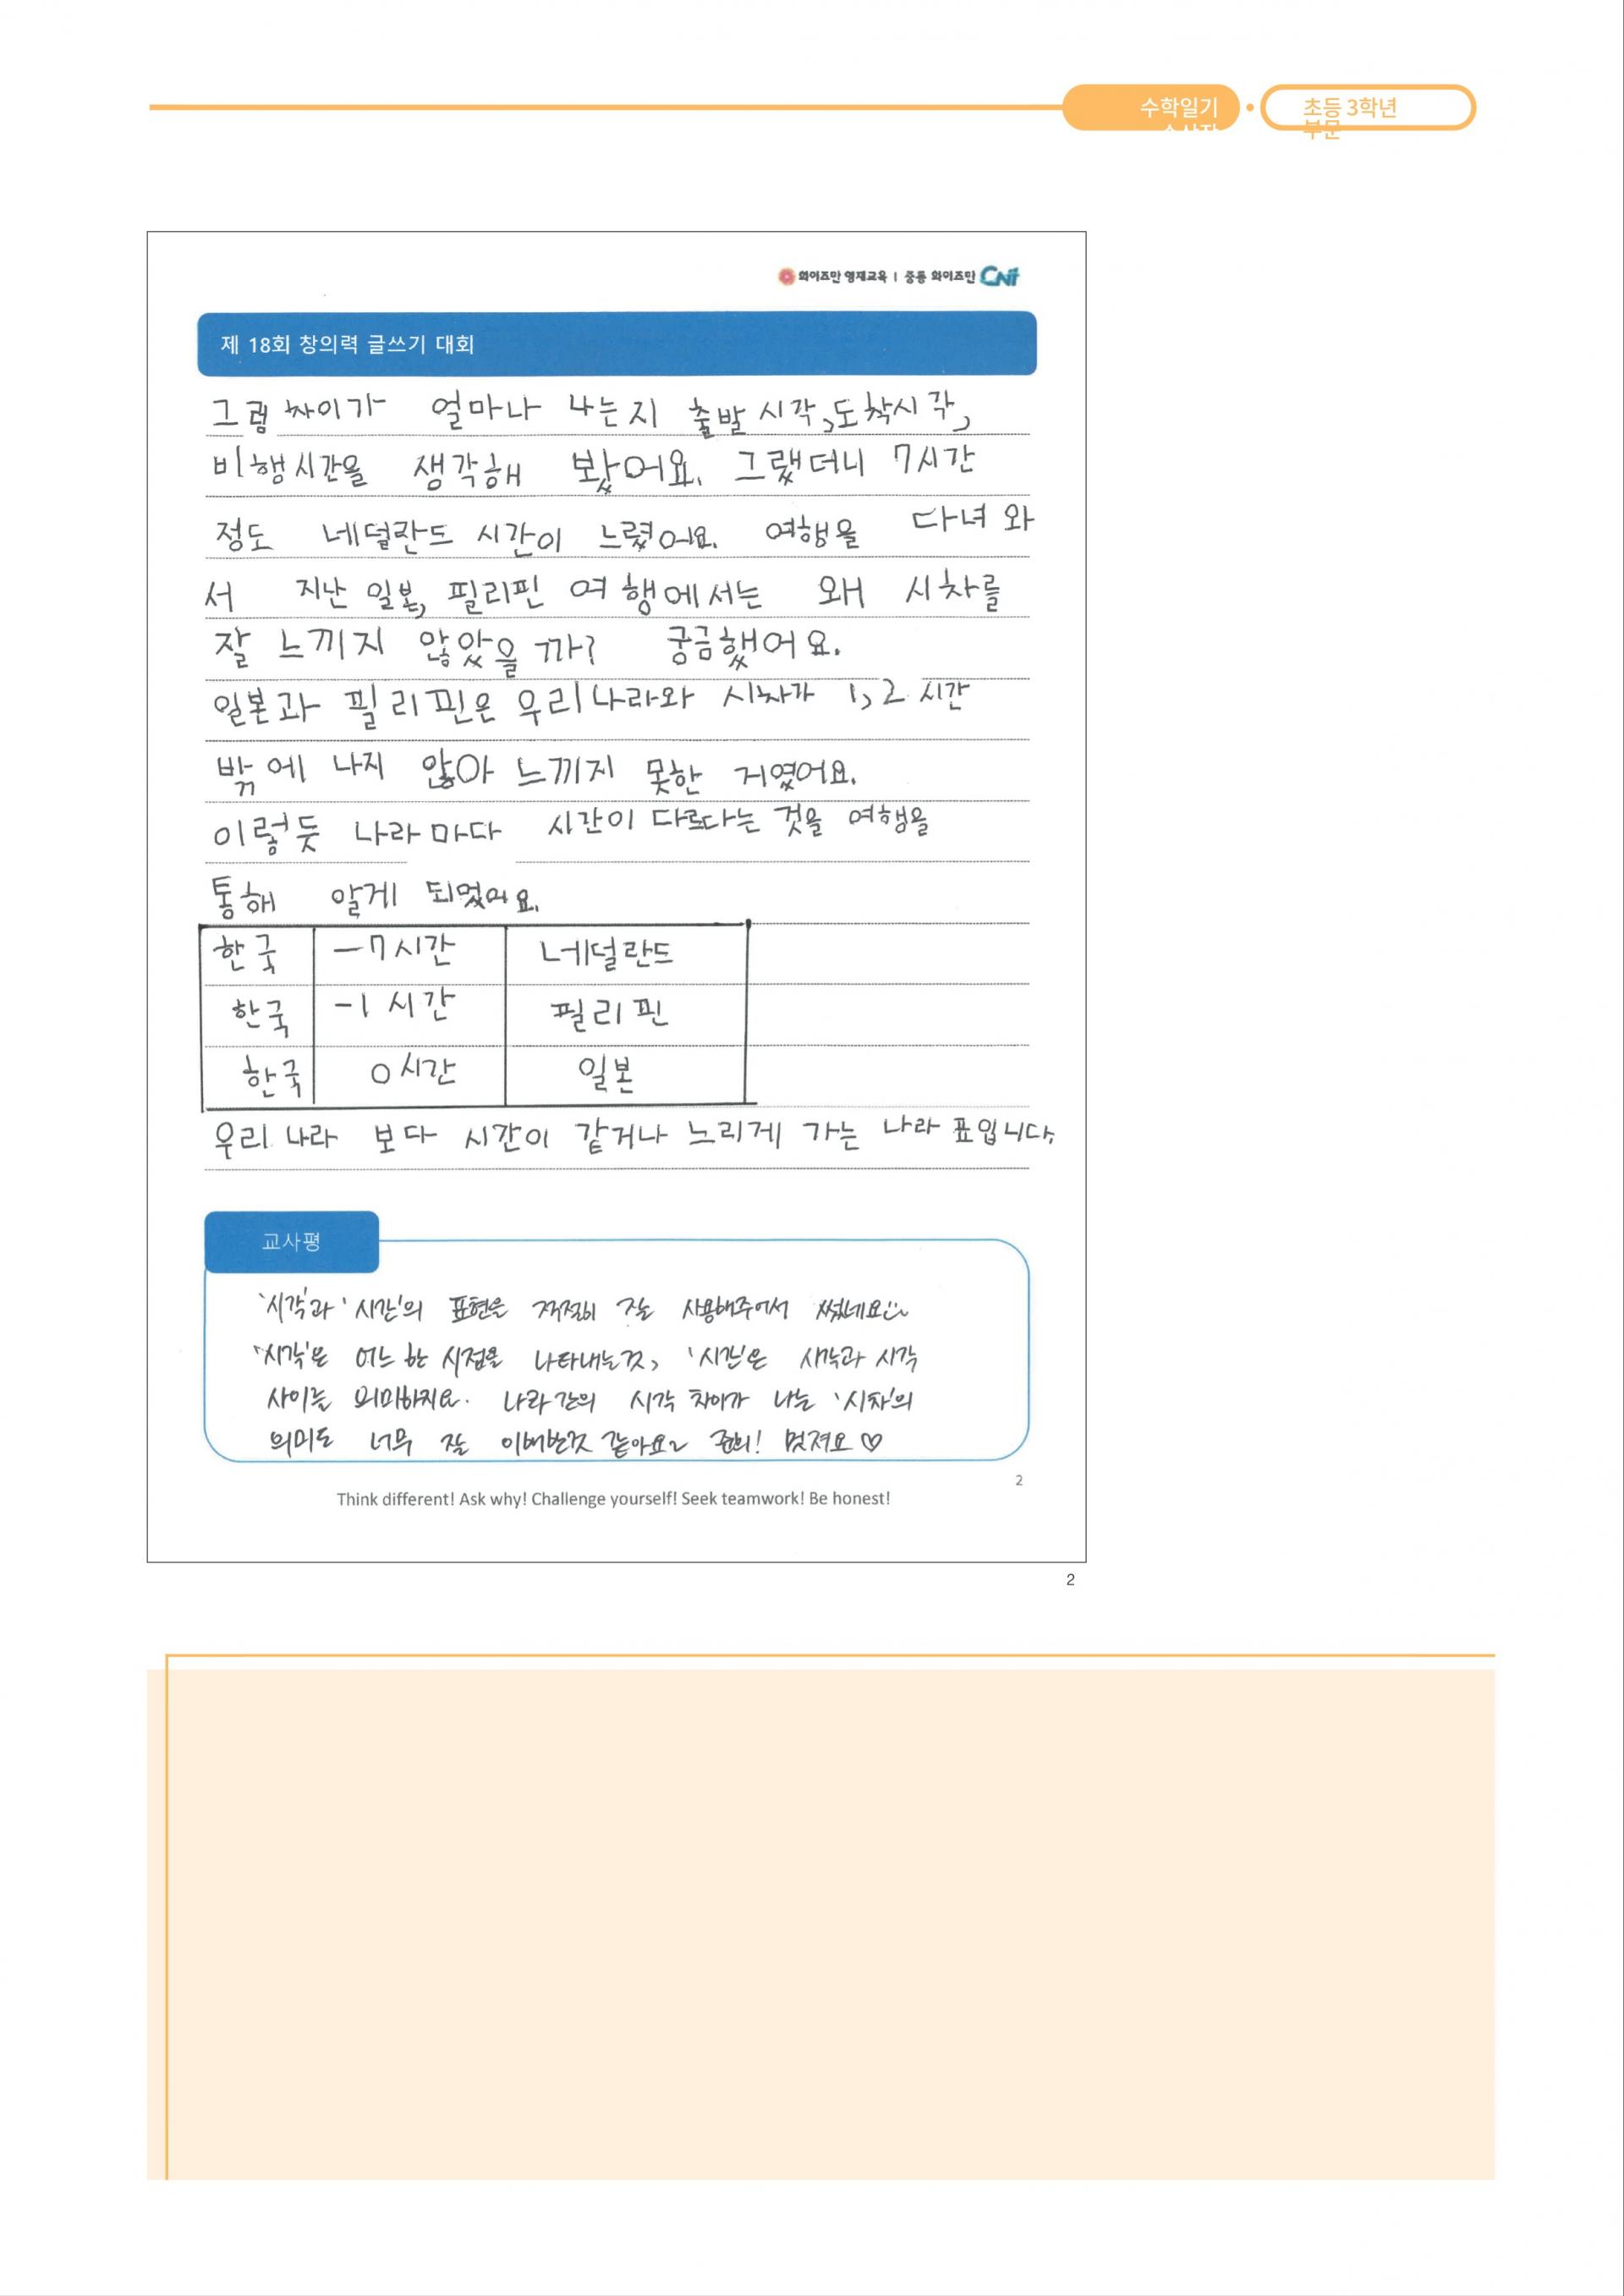 수학일기
초등 3학년
부문
와이즈만 영재교육 | 중동 와이즈만 CNI
제 18회 창의력 글쓰기 대회
그럼 차이가 얼마나 나는지 출발 시각, 도착시각,
비행시간을 생각해 봤어요. 그랬더니 7시간
정도 네덜란드 시간이 느렸어요. 여행을 다녀 와
서 지난 일본, 필리핀 여행에서는 왜 시차를
잘 느끼지 않았을 까? 궁금했어요.
일본과 필리핀은 우리나라와 시차가 1, 2 시간
밖에 나지 않아 느끼지 못한 거였어요.
이렇듯 나라 마다 시간이 다르다는 것을 여행을
통해 알게 되었어요.
한국 -7시간 네덜란드
한국 -1 시간 필리핀
한국 0시간 일본
우리 나라 보다 시간이 같거나 느리게 가는 나라 표입니다.
교사평
'시각'과 '시간'의 표현을 적절히 잘 사용해주어서 썼네요
'시각'은 어느 한 시점을 나타내는것, '시간'은 시각과 시각
사이를 의미하지요. 나라 간의 시각 차이가 나는 '시차'의
의미도 너무 잘 이해한것 같아요~ 멋져요♡
2
Think different! Ask why! Challenge yourself! Seek teamwork! Be honest!
2